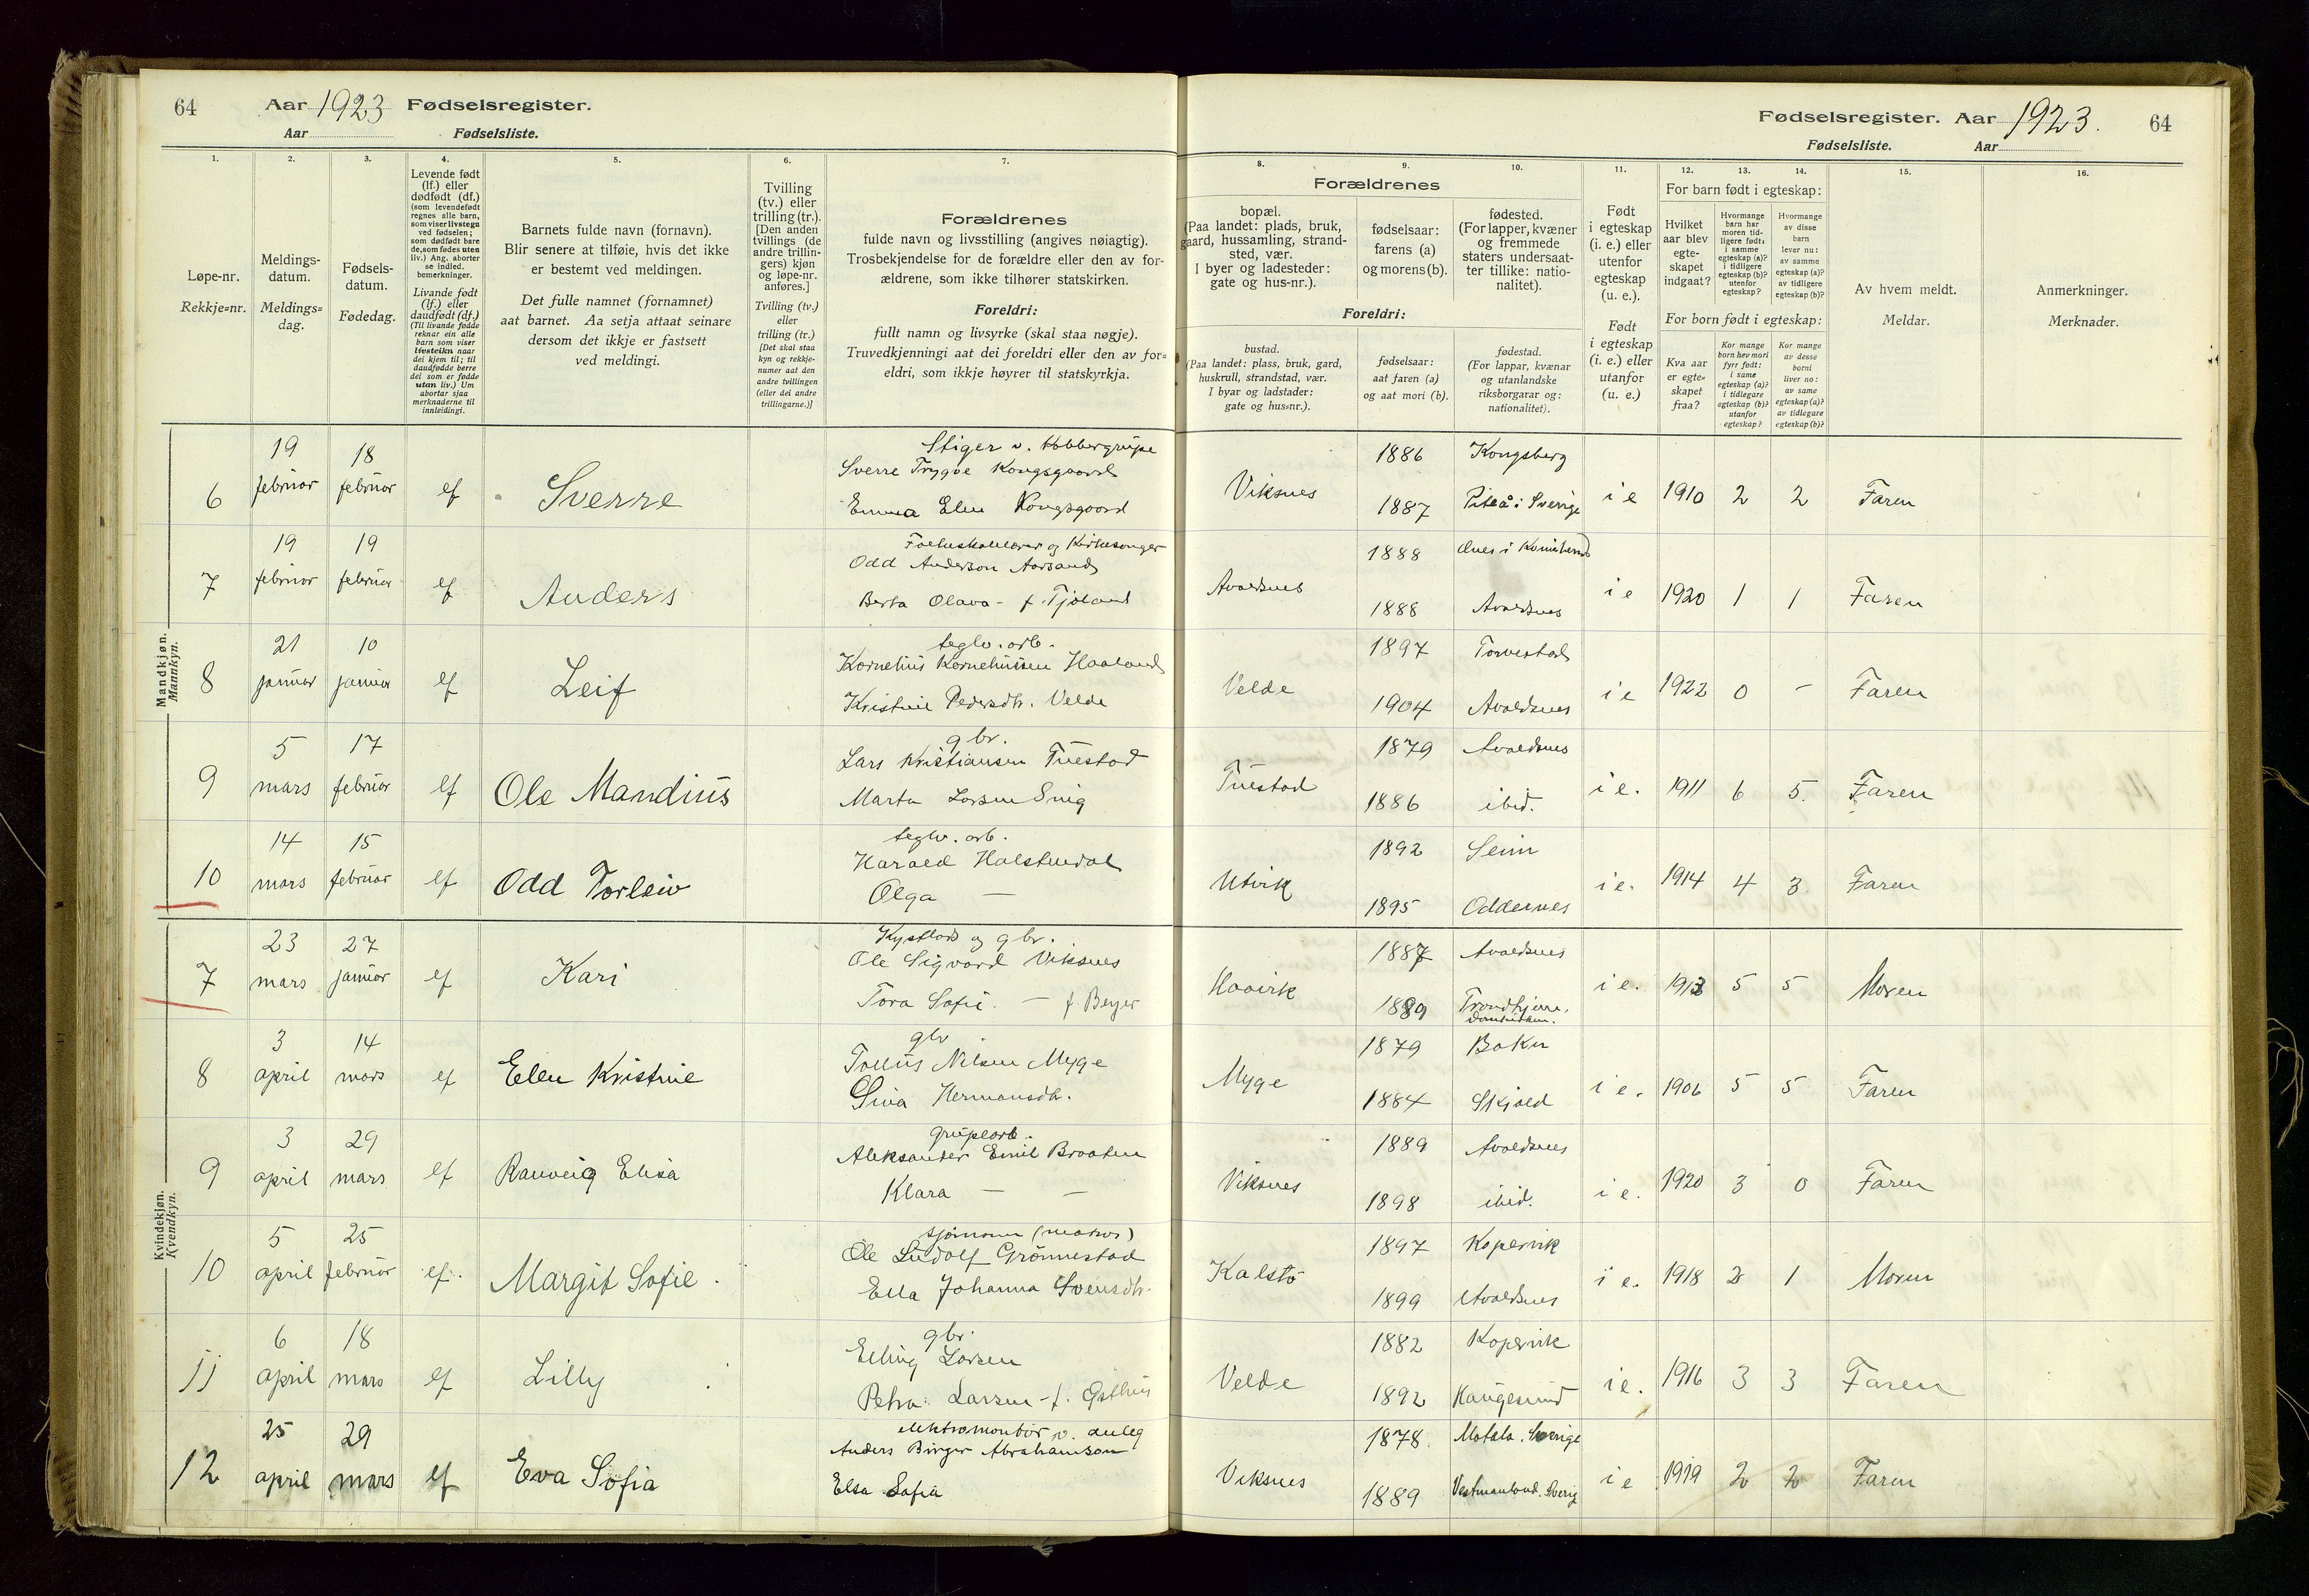 64 Aar 1923 Fødselsregister.
Aar Fødselsliste.
Fødselsregister. Aar 1923. 64
Fødselsliste. Aar
1. 2. 3. 4. 5. 6. 7. 8. 9. 10. 11. 12. 13. 14. 15. 16.
Løpe-nr.
Rekkje=nr.
Meldings-
datum.
Meldings=
dag.
Fødsels-
datum.
Fødedag.
Levende født
(lf.) eller
dødfødt (df.)
(som levendefødt
regnes alle barn,
som viser livstegn
ved fødselen;
som dødfødt bare
de, som fødes uten
liv.) Ang. aborter
se indled.
bemerkninger.
Livande født
(lf.) eller
daudfødt (df.)
(Til livande fødde
reknar ein alle
barn som viser
livsteikn naar
dei kjem til; til
daudfødde berre
dei som er fødde
utan liv.) Um
abortar sjaa
merknaderne til
innleidingi.
Barnets fulde navn (fornavn).
Blir senere at tilføie, hvis det ikke
er bestemt ved meldingen.
Det fulle namnet (fornamnet)
aat barnet. Aa setja attaat seinare
dersom det ikkje er fastsett
ved meldingi.
Tvilling
(tv.) eller
trilling (tr.).
[Den anden
tvillings (de
andre trillin-
gers) kjøn
og løpe-nr.
anføres.]
Tvilling (tv.)
eller
trilling (tr.)
[Det skal staa
kyn og rekkje-
numer aat den
andre tvillingen
(eller dei andre
trillingarne.)]
Forældrenes
fulde navn og livsstilling (angives nøiagtig).
Trosbekjendelse for de forældre eller den av for-
ældrene, som ikke tilhører statskirken.
Foreldri:
fullt namn og livsyrke (skal staa nøgje).
Truvedkjenningi aat dei foreldri eller den av for=
eldri, som ikkje høyrer til statskyrkja.
Forældrenes
bopæl.
(Paa landet: plads, bruk,
gaard, hussamling, strand-
sted, vær.
I byer og ladesteder:
gate og hus-nr.).
fødselsaar:
farens (a)
og morens (b).
fødested.
(For lapper, kvæner
og fremmede
staters undersaat-
ter tillike: natio-
nalitet).
Foreldri:
bustad.
(Paa landet: plass, bruk, gard,
huskrull, strandstad, vær.
I byar og ladstader:
gate og hus=nr.).
fødselsaar:
aat faren (a)
og aat mori (b).
fødestad.
(For lappar, kvænar
og utanlandske
riksborgarar og:
nationalitet).
Født
i egteskap
(i. e.) eller
utenfor
egteskap
(u. e.).
Født
i egteskap
(i. e.) eller
utanfor
(u. e.)
For barn født i egteskap:
Hvilket
aar blev
egte-
skapet
indgaat?
Hvormange
barn har
moren tid-
ligere født:
i samme
egteskap (a)?
i tidligere
egteskap (b)?
utenfor
egteskap?
Hvormange
av disse
barn
lever nu:
av samme
egteskap (a)?
av tidligere
egteskap (b)?
For born født i egteskap:
Kva aar
er egte=
skapet
fraa?
Kor mange
born hev mori
fyrr født:
i same
egteskap (a)?
i tidlegare
egteskap (b)?
utanfor
egteskap?
Kor mange
av desse
borni
liver no:
av same
egteskap (a)?
av tidlegare
egteskap (b)?
Av hvem meldt.
Meldar.
Anmerkninger.
Merknader.
Mandkjøn.
Mannkyn.
6 19 februar 18 februar lf Sverre
Stiger v.
Sverre Trygve Kongsgaard
Emma Elen Kongsgaard
Viksnes 1886 Kongsberg
1887 Piteå i Sverige i e 1910 2 2 Faren
7 19 februar 19 februar lf Anders
og Kirkesanger
Odd Anderson Aarsand
Berta Olava - f. Tjøland
Avaldsnes 1888
1888 Avaldsnes i e 1920 1 1 Faren
8 21 januar 10 januar lf Leif
teglv. arb.
Kornelius Korneliussen Haaland
Kristine Pedersdtr. Velde
Velde 1897 Torvestad
1904 Avaldsnes i e 1922 0 - Faren
9 5 mars 17 februar lf Ole Mandius
gbr.
Lars Kristiansen Tuestad
Marta Larsen Snig
Tuestad 1879 Avaldsnes
1886 ibid. i e. 1911 6 5. Faren
10 14 mars 15 februar lf Odd Torleiv
teglv. arb.
Harald Halstendal
Olga —
Utvik 1892 Seim
1895 Oddernes i e. 1914 4 3 Faren
Kvindekjøn.
Kvendkyn.
7 23 mars 27 januar lf Kari
og gbr.
Ole Sigvard Viksnes
Tora Sofie — f Berger
Haavik 1887 Avaldsnes
1889 i e. 1913 5 5 Moren
8 3 april 14 mars lf Ellen Kristine
gbr
Tollus Nilsen Myge
Sina Hermansdtr.
Myge 1879 Bokn
1884 Skjold i e. 1906 5 5 Faren
9 3 april 29 mars lf Ranveig Elisa
grubearb.
Aleksander Emil Braaten
Klara — —
Viksnes 1889 Avaldsnes
1898 ibid. i e. 1920 3 0 Faren
10 5 april 25 februar lf. Margit Sofie.
sjømann (matros)
Ole Ludolf Grønnestad
Ella Johanna Svensdtr.
Kalstø 1897 Kopervik
1899 Avaldsnes i e. 1918 2 1 Moren
11 6 april 18 mars lf Lilly
gbr.
Elling Larsen
Petra Larsen - f. Østhus
Velde 1882 Kopervik
1892 Haugesund i e. 1916 3 3 Faren
12 25 april 29 mars lf Eva Sofia
elektromontør v. anleg
Anders Birger Abrahamson
Elsa Sofia
Viksnes 1878. Motala. Sverige
1889 Vestmanland. Sverig i e 1919 2 2 Faren